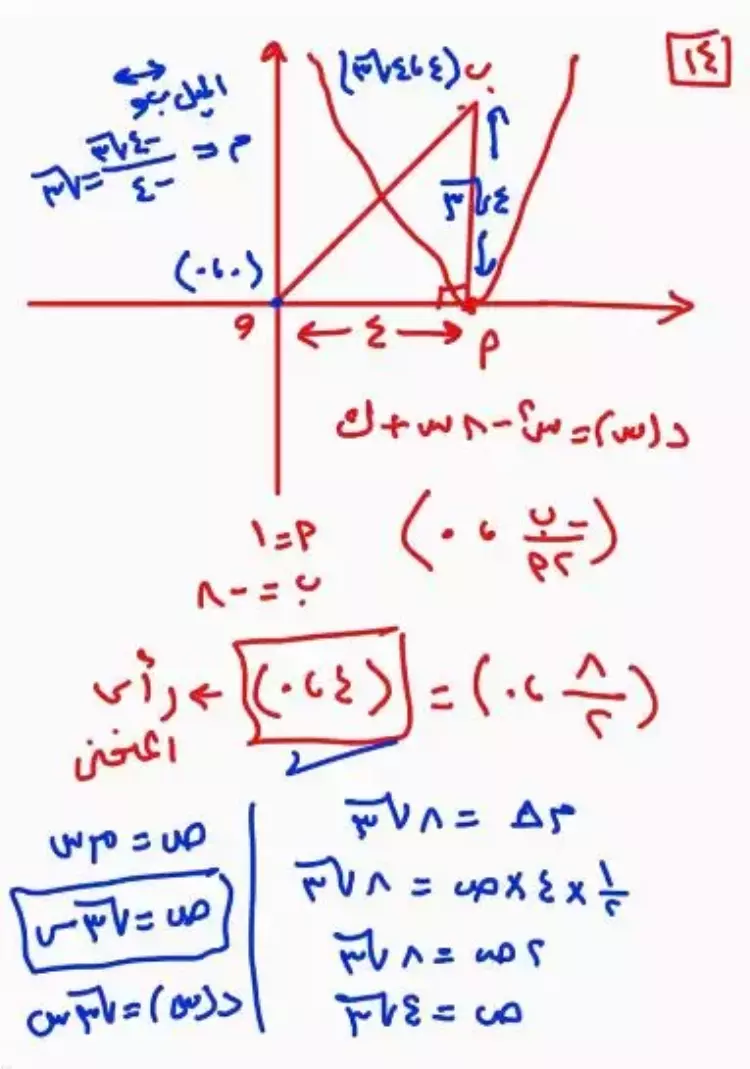 ١٤
ب(٤ ، ٤√٣)
الميل ب و
م = -٤√٣/-٤ = √٣
٤√٣
(٠ ، ٠)
و
٤
أ
د(س) = س٢ - ٨س + ك
(-ب/٢أ ، ٠)
أ = ١
ب = -٨
(٨/٢ ، ٠) = (٤ ، ٠) ← رأس
المنحنى
م Δ = ٨√٣
١/٢ × ٤ × ص = ٨√٣
٢ص = ٨√٣
ص = ٤√٣
ص = م س
ص = √٣ س
د(س) = √٣ س